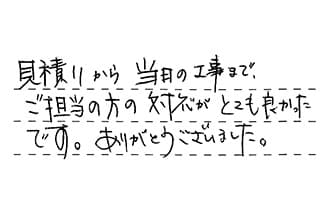 見積りから当日の工事まで、
ご担当の方の対応がとても良かった
です。ありがとうございました。